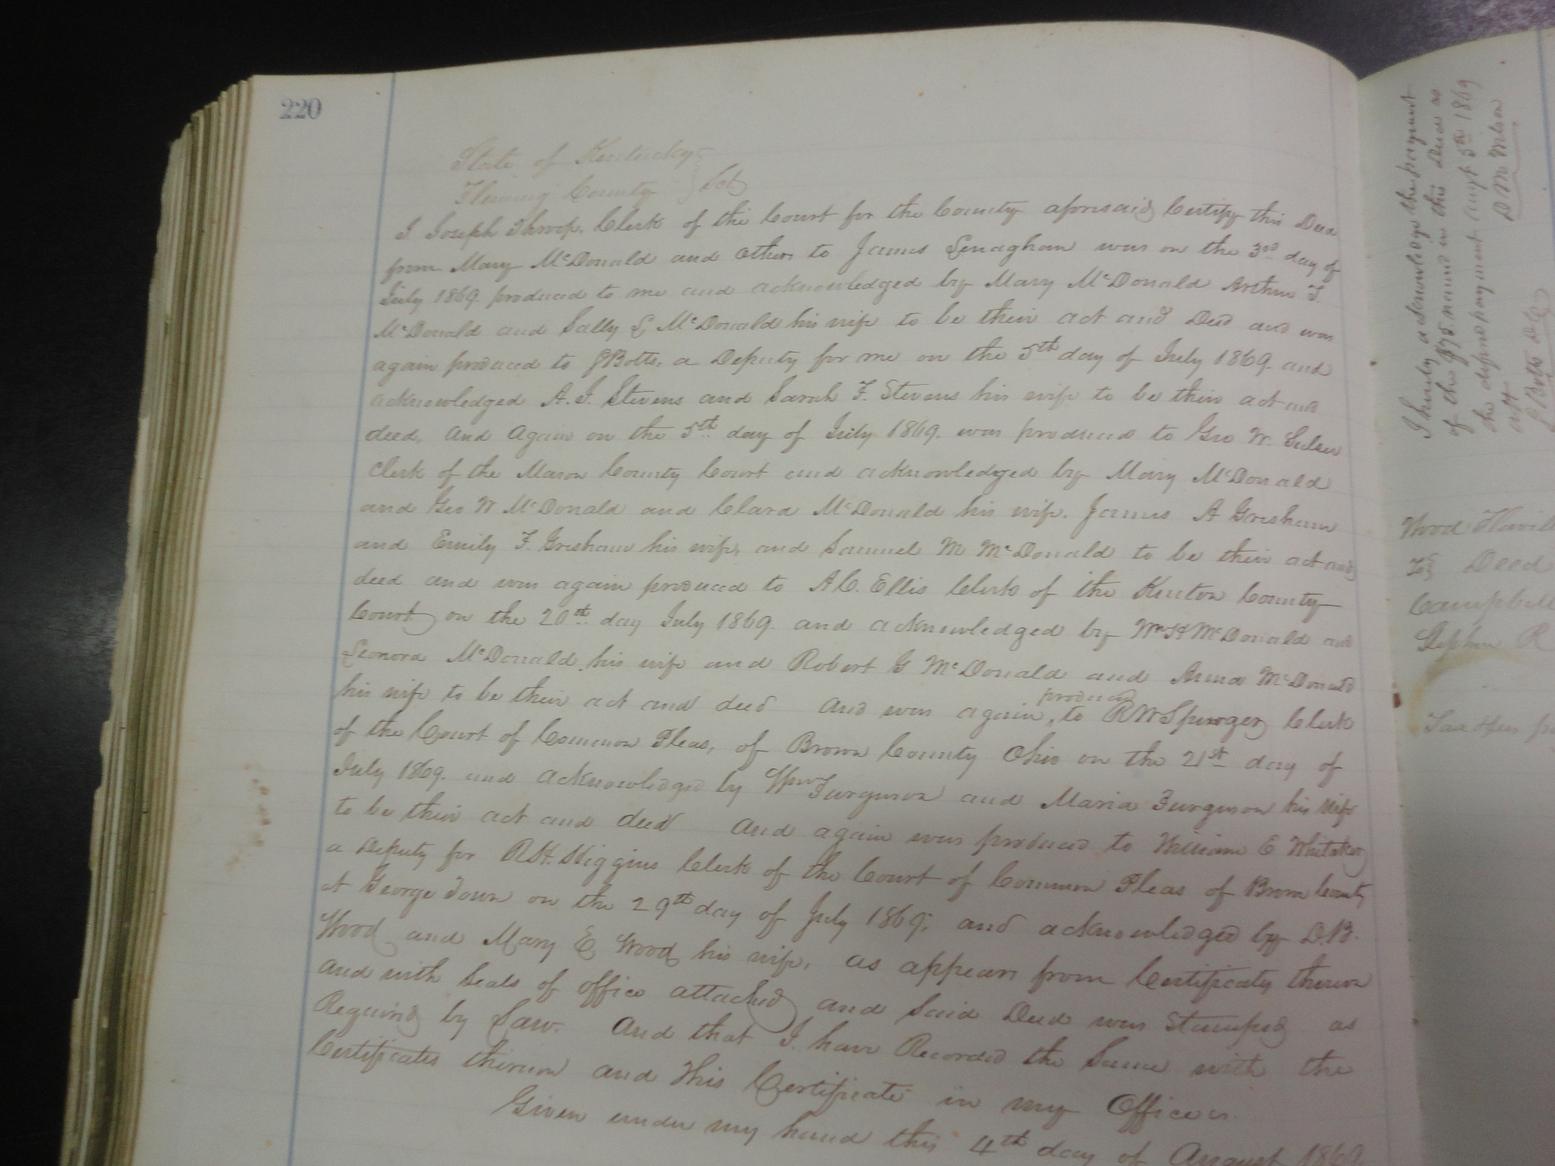 220
State of Kentucky
Fleming County } Sct
I Joseph Throop, Clerk of the Court for the County aforesaid Certify this Deed
from Mary McDonald and others to James Genaghan was on the 3rd day of
July 1869 produced to me and acknowledged by Mary McDonald Arthur T.
McDonald and Sally G McDonald his wife to be their act and Deed and was
again produced to J Botts, a Deputy for me on the 5th day of July 1869. and
acknowledged A. J. Stevens and Sarah F. Stevens his wife to be their act and
deed, and again on the 5th day of July 1869. was produced to Geo W. Sulser
Clerk of the Mason County Court and acknowledged by Mary McDonald
and Geo W McDonald and Clara McDonald his wife. James A Grisham
and Emily F. Grisham his wife, and Samuel M McDonald to be their act and
deed and was again produced to A C. Ellis Clerk of the Kenton County
Court on the 20st day July 1869. and acknowledged by Wm H McDonald and
Leonora McDonald his wife and Robert G McDonald and Anna McDonald
his wife to be their act and deed and was again, produced to R W Spurger Clerk
of the Court of Common Pleas, of Brown County Ohio on the 21st day of
July 1869. and acknowledged by Wm Furguson and Maria Furguson his wife
to be their act and deed and again was produced to William E Whitaker
a Deputy for R. H. Higgins Clerk of the Court of Common Pleas of Brown County
at George Town on the 29th day of July 1869; and acknowledged by D. B.
Wood and Mary E Wood his wife, as appears from Certificates thereon
and with Seals of office attached and Said Deed was Stamped as
Required by Law. And that I have Recorded the Same with the
Certificates thereon and This Certificate in my Office
Given under my hand this 4th day of August 1869
I hereby acknowledge the payment
of the $75 named in this Deed as
the defered payment Augt 5th 1869
att D M Wilson
J Botts D C
Wood
To Deed
Campbell
Stephen R